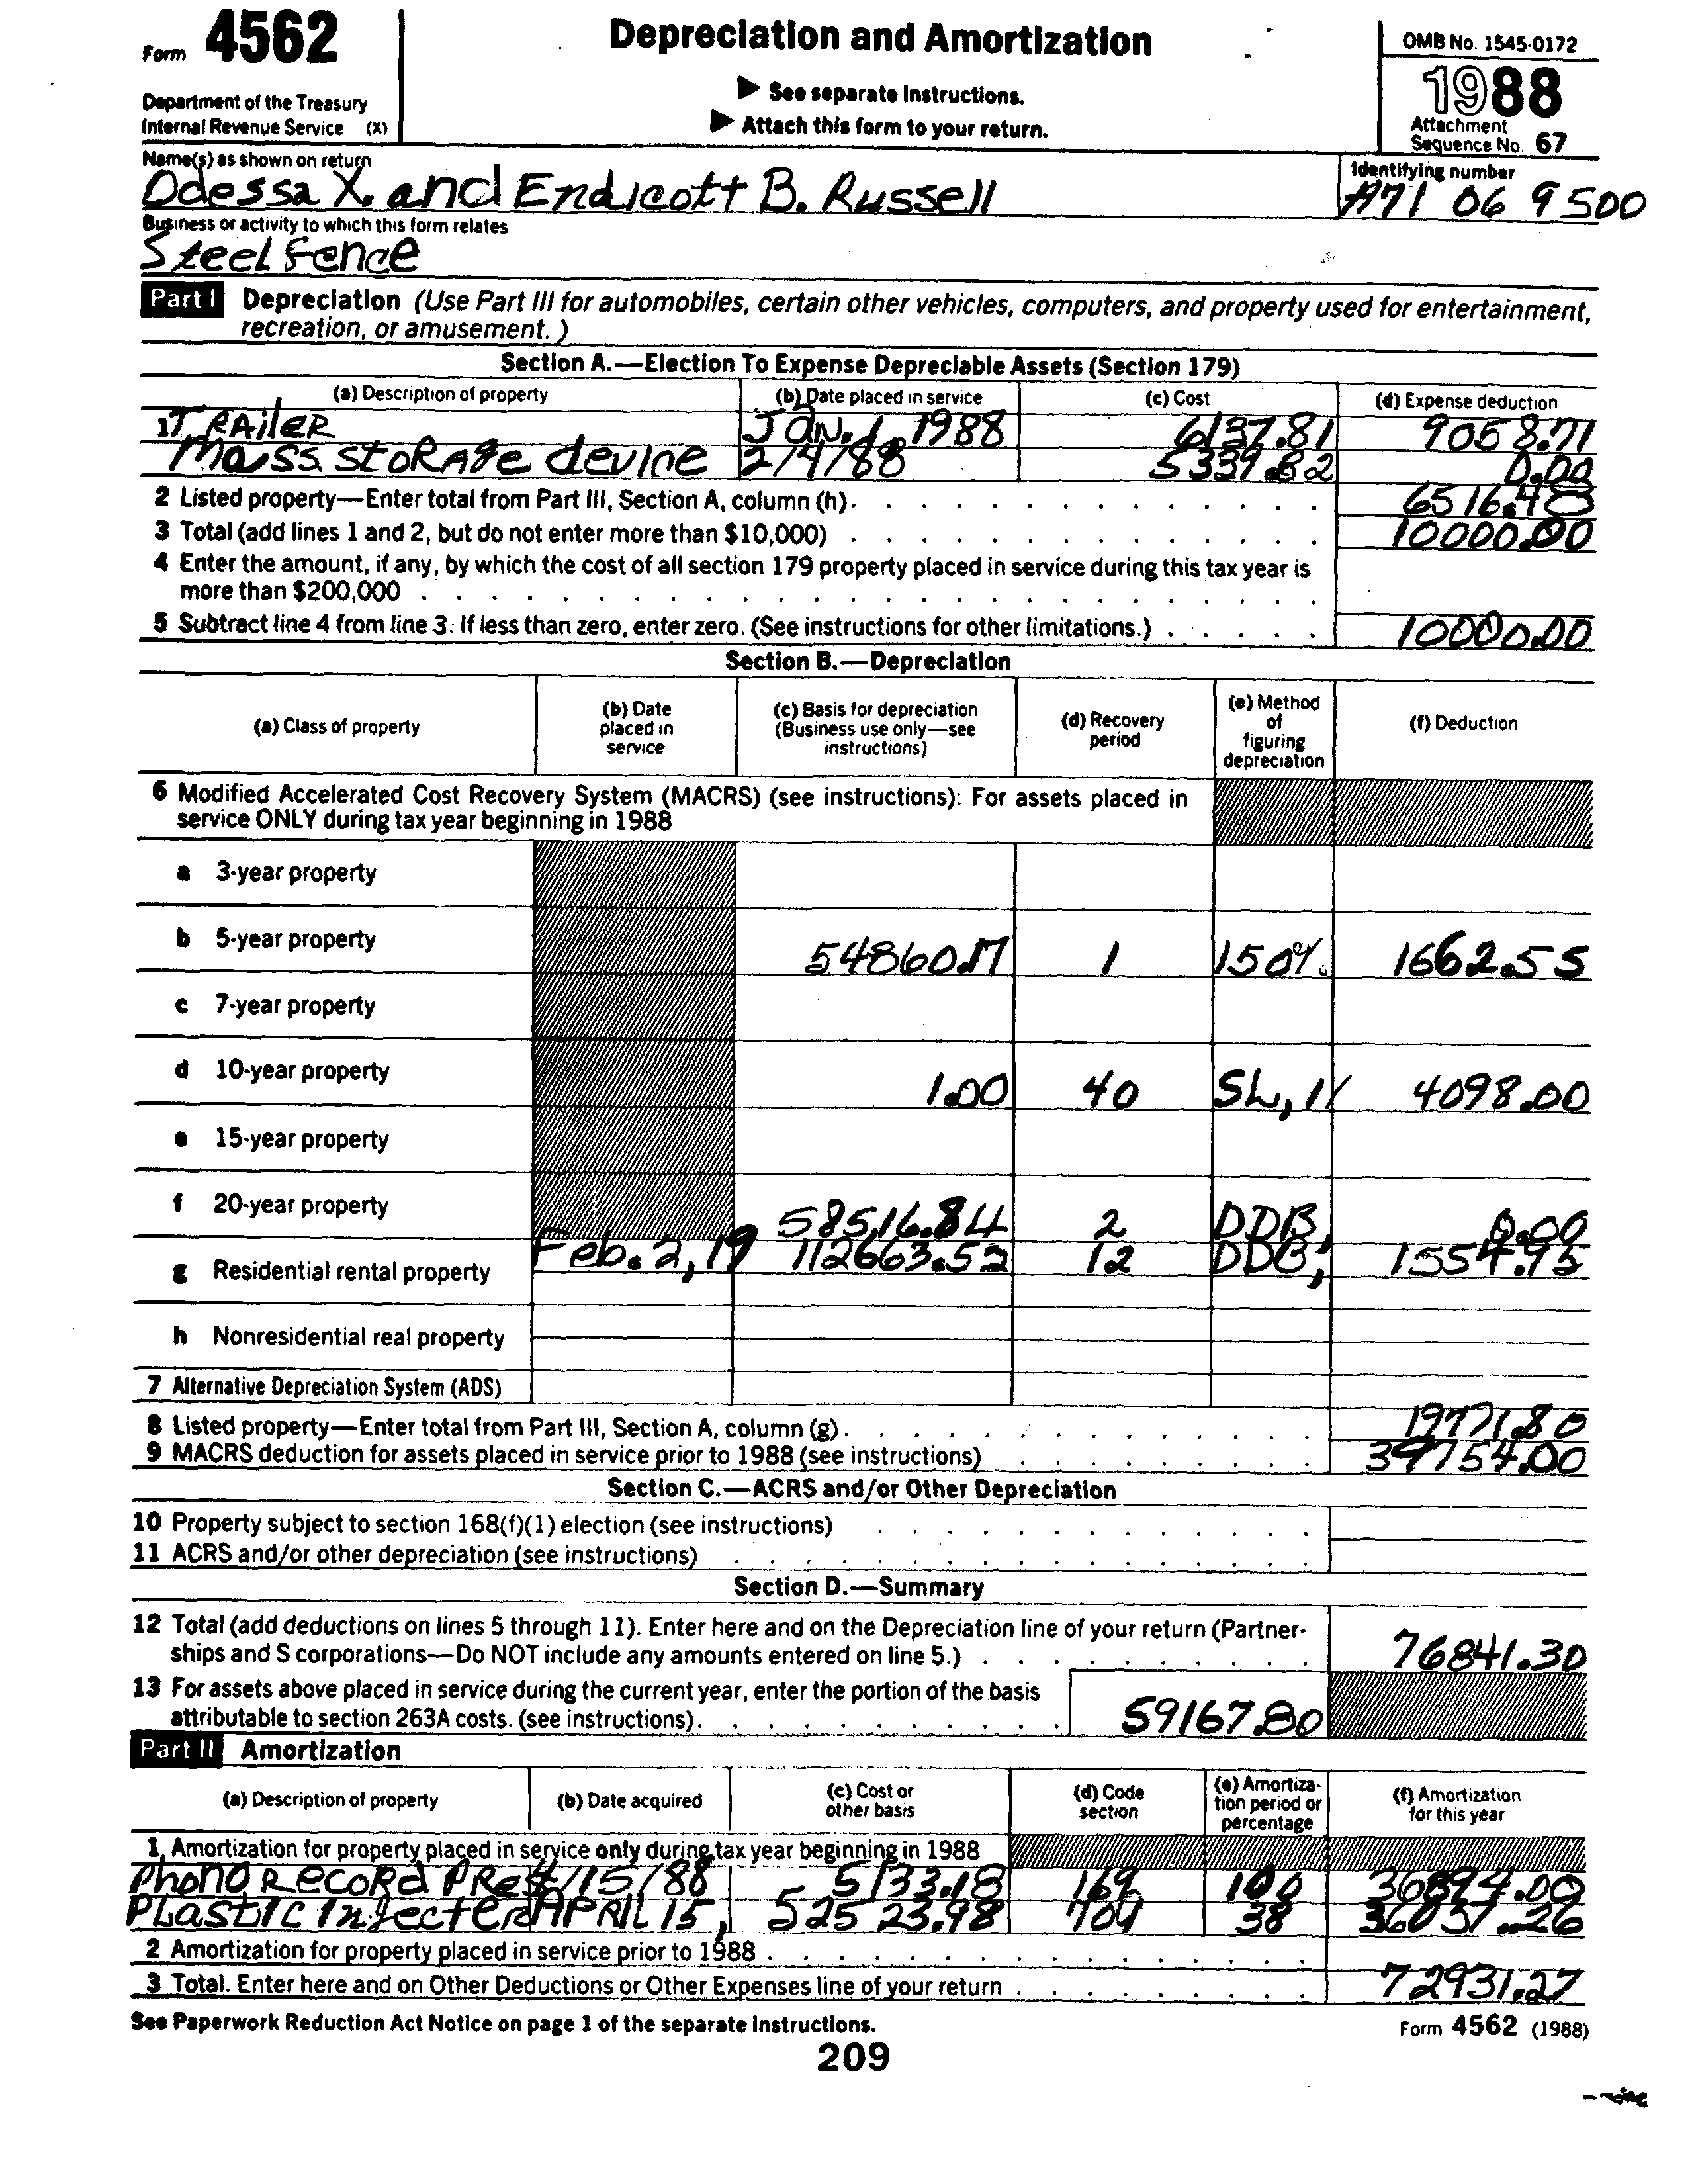 Form 4562
Department of the Treasury
Internal Revenue Service (X)
Depreciation and Amortization
▶ See separate Instructions.
▶ Attach this form to your return.
OMB No. 1545-0172
1988
Attachment
Sequence No. 67
Name(s) as shown on return
Odessa X. and Endicott B. Russell
Identifying number
A71 06 9500
Business or activity to which this form relates
Steel fence
Part I Depreciation (Use Part III for automobiles, certain other vehicles, computers, and property used for entertainment,
recreation, or amusement.)
Section A.—Election To Expense Depreciable Assets (Section 179)
(a) Description of property (b) Date placed in service (c) Cost (d) Expense deduction
1 TRAiLER JAN. 1, 1988 6137.81 9058.71
Mass stoRAge device 2/4/88 5339.82 0.00
2 Listed property—Enter total from Part III, Section A, column (h). 6516.48
3 Total (add lines 1 and 2, but do not enter more than $10,000) 10000.00
4 Enter the amount, if any, by which the cost of all section 179 property placed in service during this tax year is
more than $200,000
5 Subtract line 4 from line 3. If less than zero, enter zero. (See instructions for other limitations.) 10000.00
Section B.—Depreciation
(a) Class of property (b) Date placed in service (c) Basis for depreciation (Business use only—see instructions) (d) Recovery period (e) Method of figuring depreciation (f) Deduction
6 Modified Accelerated Cost Recovery System (MACRS) (see instructions): For assets placed in
service ONLY during tax year beginning in 1988
a 3-year property
b 5-year property 54860.17 1 150% 1662.55
c 7-year property
d 10-year property 1.00 40 SL, 1/ 4098.00
e 15-year property
f 20-year property 58516.84 2 DDB, 0.00
g Residential rental property Feb. 2, 19 112663.52 12 DDB, 1554.95
h Nonresidential real property
7 Alternative Depreciation System (ADS)
8 Listed property—Enter total from Part III, Section A, column (g). 19771.80
9 MACRS deduction for assets placed in service prior to 1988 (see instructions) 39754.00
Section C.—ACRS and/or Other Depreciation
10 Property subject to section 168(f)(1) election (see instructions)
11 ACRS and/or other depreciation (see instructions)
Section D.—Summary
12 Total (add deductions on lines 5 through 11). Enter here and on the Depreciation line of your return (Partner-
ships and S corporations—Do NOT include any amounts entered on line 5.) 76841.30
13 For assets above placed in service during the current year, enter the portion of the basis
attributable to section 263A costs. (see instructions). 59167.80
Part II Amortization
(a) Description of property (b) Date acquired (c) Cost or other basis (d) Code section (e) Amortiza-tion period or percentage (f) Amortization for this year
1 Amortization for property placed in service only during tax year beginning in 1988
Phono RecoRd PRes 4/15/88 5133.18 169 100 36894.00
PLastic injecteR APRIL 15, 52523.98 709 38 36037.26
2 Amortization for property placed in service prior to 1988
3 Total. Enter here and on Other Deductions or Other Expenses line of your return 72931.27
See Paperwork Reduction Act Notice on page 1 of the separate instructions.
Form 4562 (1988)
209